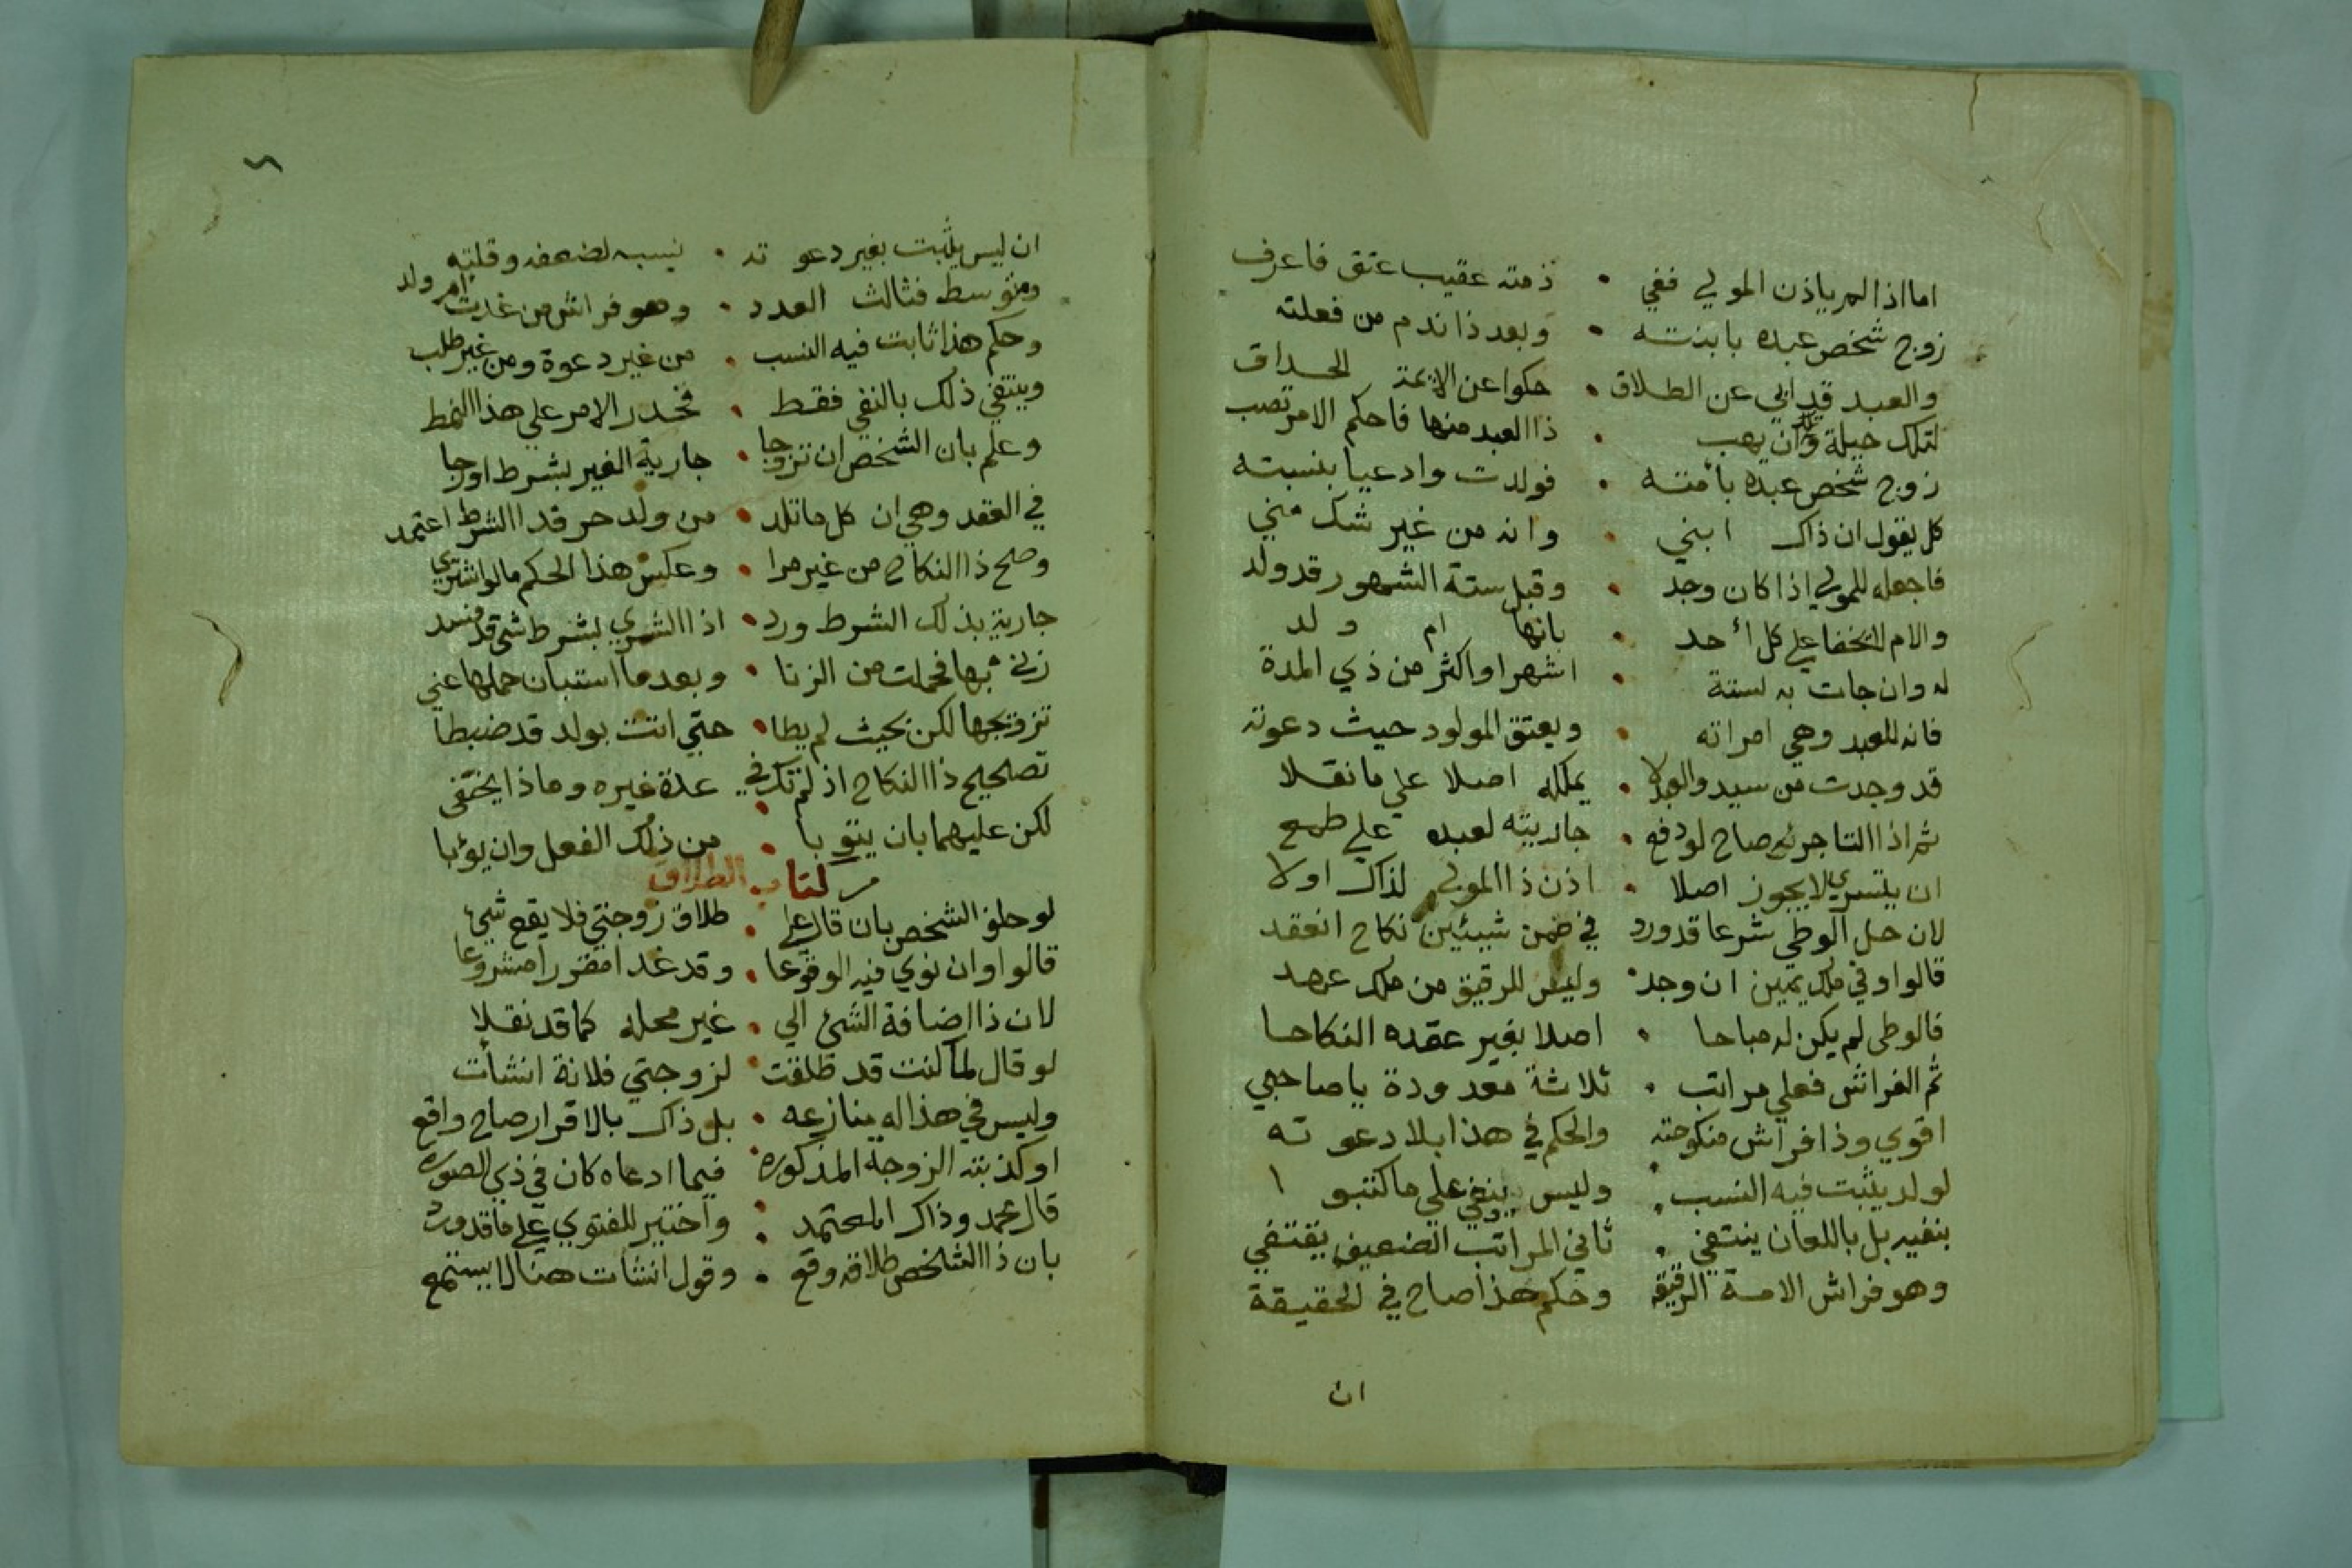 اما اذا لم ياذن المولي ففي • ذمته عقيب عتق فاعرف
زوج شخص عبده بابنته • وبعد ذا ندم من فعلته
والعبد قد ابي عن الطلاق • حكوا عن الائمة الحداق
لتلك حيلة وان يهب • ذا العبد منها فاحكم الامر تصب
زوج شخص عبده بأمته • فولدت وادعيا بنسبته
كل يقول ان ذاك ابني • وانه من غير شك مني
فاجعله للمولي اذا كان وجد • وقبل ستة الشهور قد ولد
والام لا يخفا علي كل أحد • بانها ام ولد
له وان جات به لستة • اشهر او اكثر من ذي المدة
فانه للعبد وهي امراته • ويعتق المولود حيث دعوته
قد وجدت من سيد والعبد لا • يملكه اصلا علي ما نقلا
ثم اذا التاجر صاح لو دفع • جاريته لعبده علي طمع
ان يتسري لا يجوز اصلا • اذن ذا المولي لذاك اولا
لان حل الوطي شرعا قد ورد في ضمن شيئين نكاح انعقد
قالوا وفي ملك يمين ان وجد • وليس للرقيق من ملك عهد
فالوطي لم يكن له مباحا • اصلا بغير عقده النكاحا
ثم الفراش فعلي مراتب • ثلاثة معدودة يا صاحبي
اقوي وذا فراش منكوحته • والحكم في هذا بلا دعوته
لولد يثبت فيه النسب • وليس ينفي علي ما كتبوا
بنفيه بل باللعان ينتفي • ثاني المراتب الضعيف يقتفي
وهو فراش الامة الرقيقة وحكم هذا صاح في الحقيقة
ان
٦
ان ليس يثبت بغير دعوته • نسبه لضعفه وقلته
ومتوسط فثالث العدد • وهو فراش من غدت ام ولد
وحكم هذا ثابت فيه النسب • من غير دعوة ومن غير طلب
وينتفي ذلك بالنفي فقط • فخذ الامر علي هذا النمط
وعلم بان الشخص ان تزوجا • جارية الغير بشرط اوجا
في العقد وهي ان كل ما تلد • من ولد حر قد الشرط اعتمد
وصح ذا النكاح من غير مرا • وعكس هذا الحكم ما لو اشتري
جارية بذلك الشرط ورد • اذا الشري بشرط شي قد فسد
زني بها فحملت من الزنا • وبعد ما استبان حملها عني
تزويجها لكن بحيث لم يطا • حتي اتت بولد قد ضبطا
تصحيح ذا النكاح اذ لم تك في • عدة غيره وما ذا يختفي
لكن عليهما بان يتوبا • من ذلك الفعل وان يؤبا
كتاب الطلاق
لو حلف الشخص بان قال علي • طلاق زوجتي فلا يقع شيئ
قالوا وان نوي فيه الوقوعا • وقد غدا امقررا مشروعا
لان ذا اضافة الشئ الي • غير محله كما قد نقلا
لو قال لما كنت قد طلقت • لزوجتي فلانة انشأت
وليس في هذا له ينازعه • بل ذاك بالاقرار صاح واقع
او كذبته الزوجة المذكوره • فيما ادعاه كان في ذي الصوره
قال محمد وذاك المعتمد • واختير للفتوي علي ما قد ورد
بان ذا الشخص طلاقه وقع • وقول انشات هنا لا يستمع